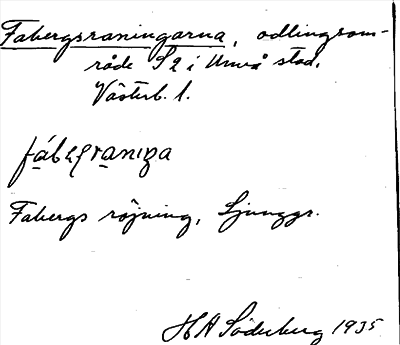 Fabergsraningarna, odlingsom-
råde S2 i Umeå stad.
Västerb. l.
Fabergs röjning, Ljunggr.
H A Söderberg 1935